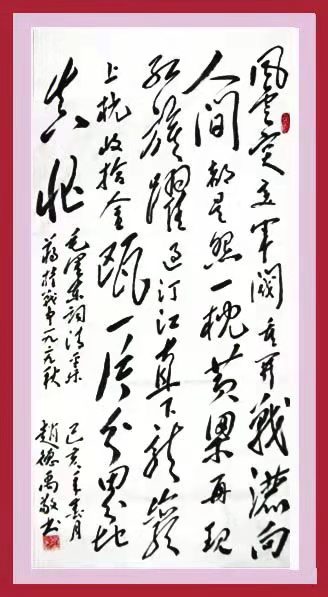 風雲突变軍閥重开戰灑向
人间都是怨一枕黄粱再现
红旗躍过汀江直下龙巖
上杭收拾金瓯一片分田分地
真忙
毛泽东词清平乐
蒋桂战争一九二九秋
己亥年春月
趙德禹敬书